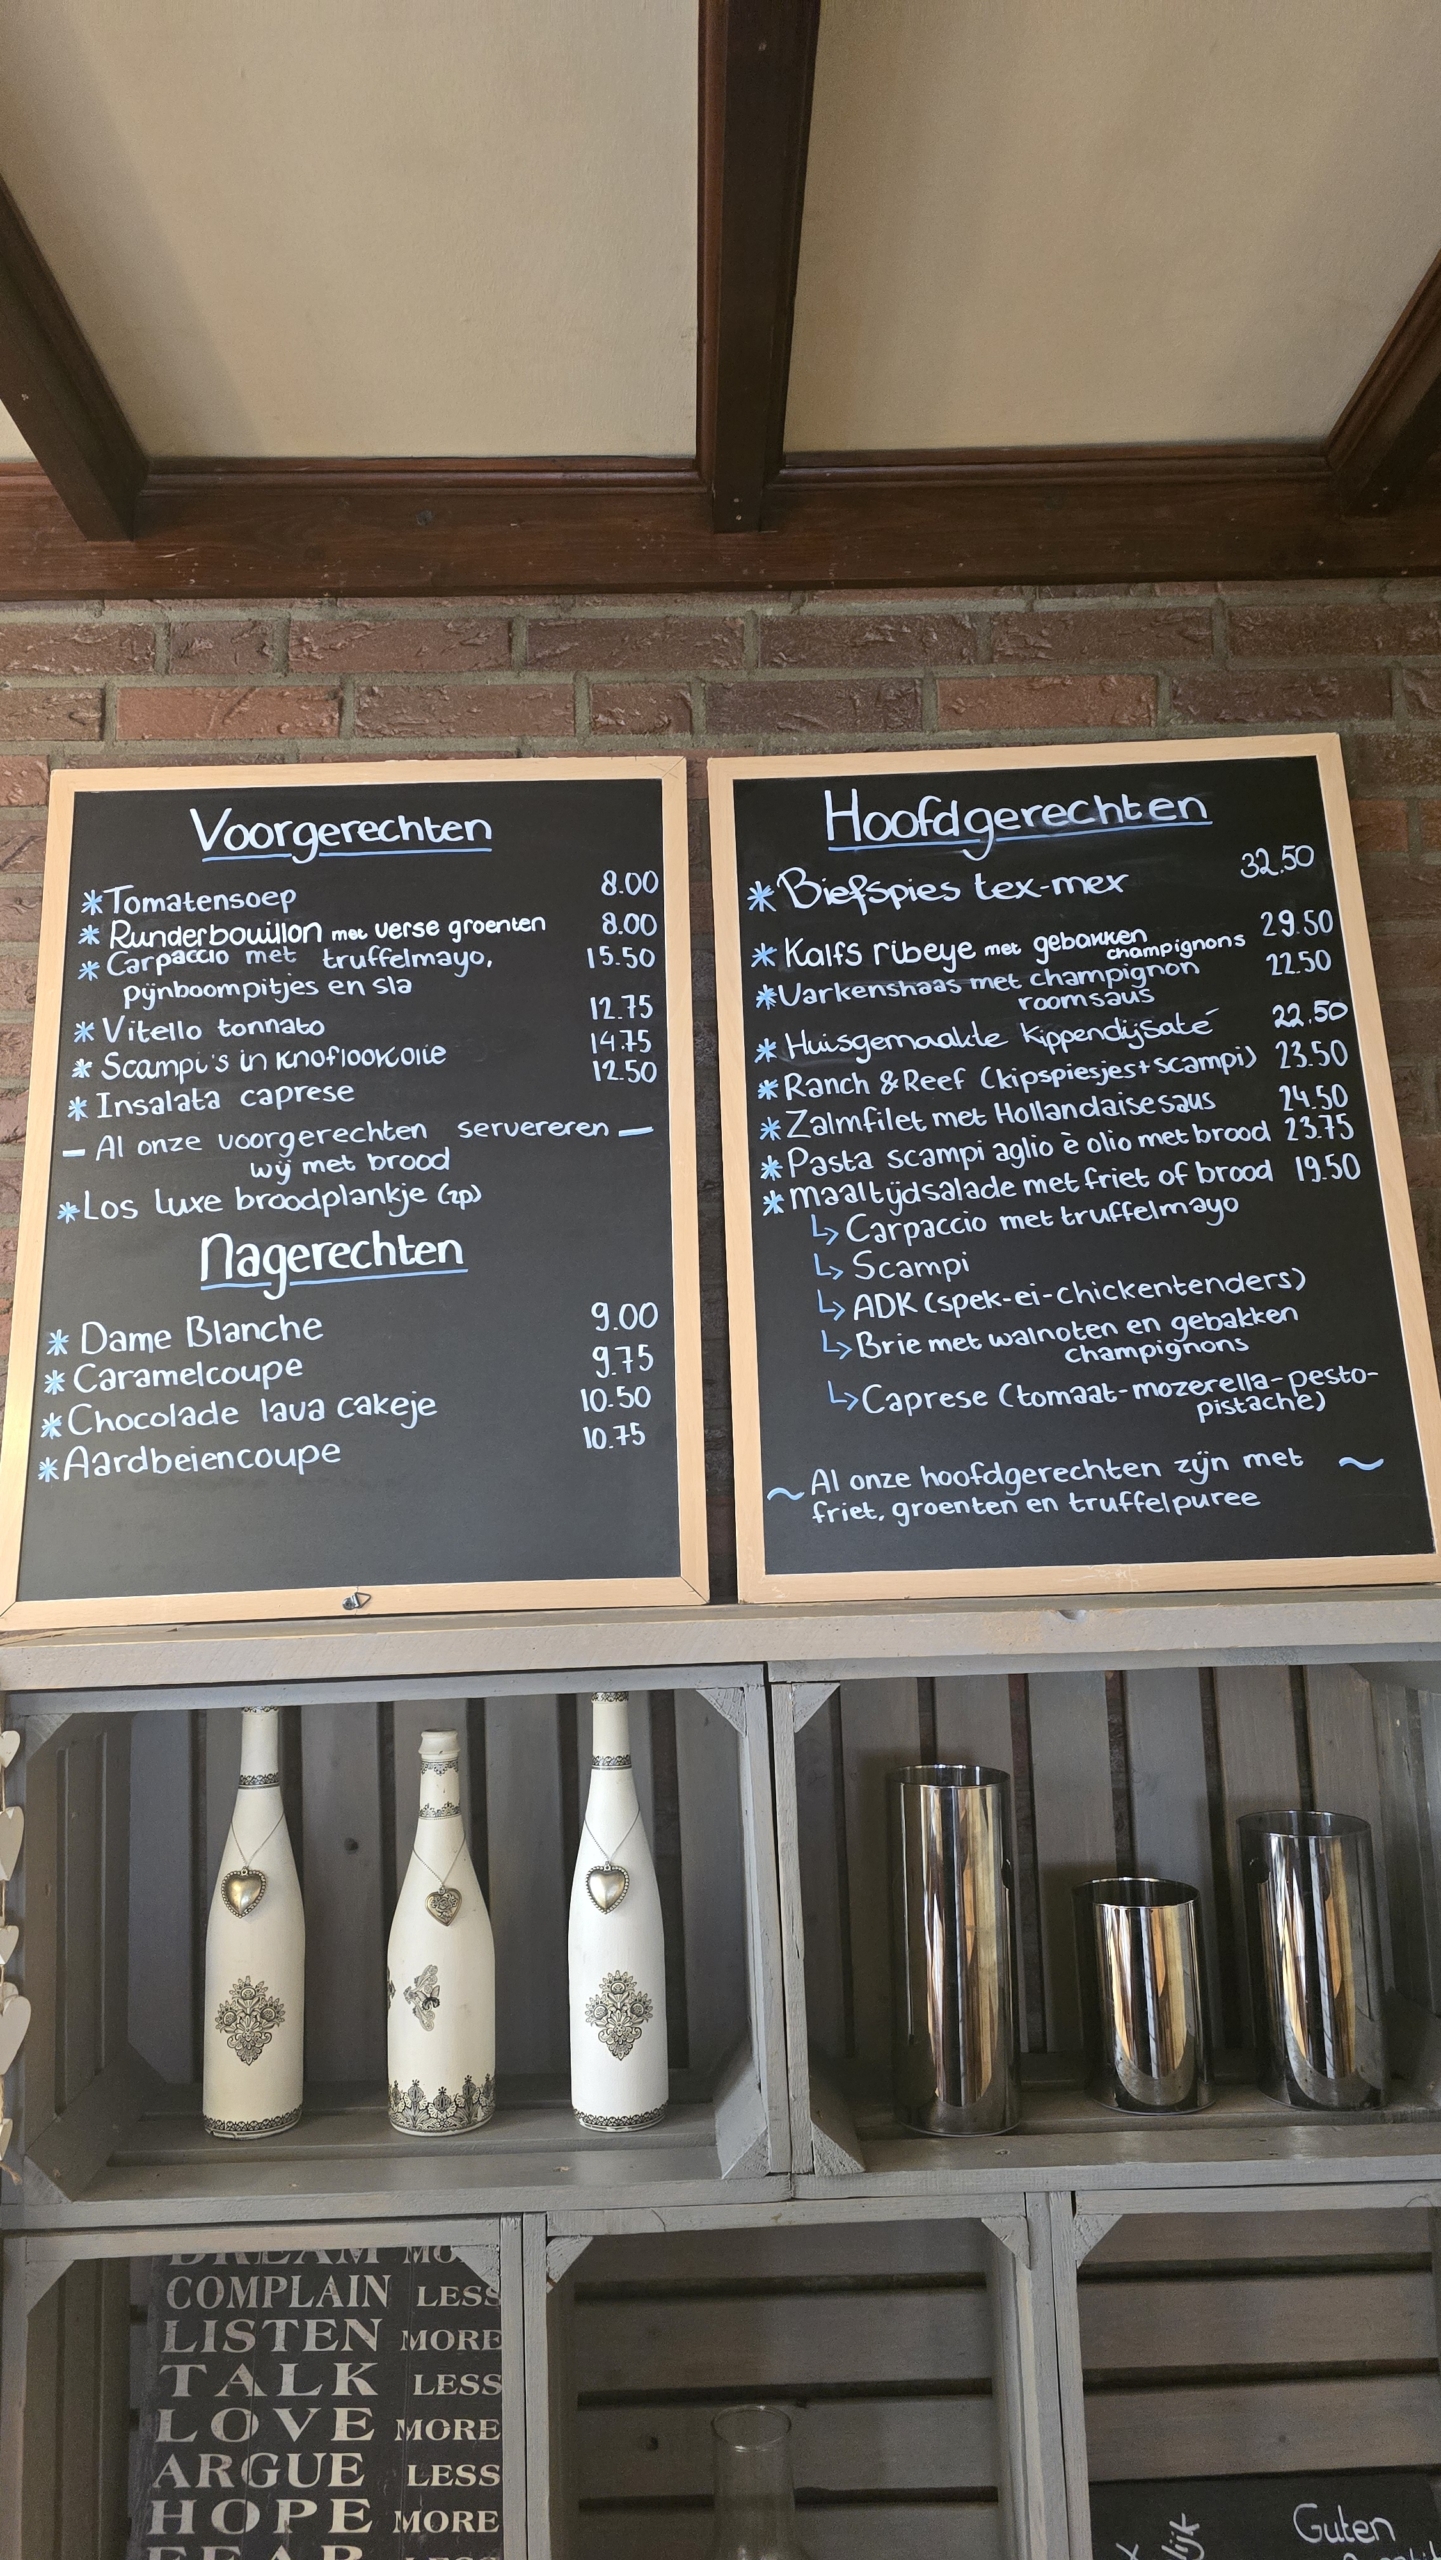 Voorgerechten
* Tomatensoep 8.00
* Runderbouillon met verse groenten 8.00
* Carpaccio met truffelmayo, 15.50
pijnboompitjes en sla
* Vitello tonnato 12.75
* Scampi's in knoflookolie 14.75
* Insalata caprese 12.50
– Al onze voorgerechten servereren –
wij met brood
* Los luxe broodplankje (2p)
Nagerechten
* Dame Blanche 9.00
* Caramelcoupe 9.75
* Chocolade lava cakeje 10.50
* Aardbeiencoupe 10.75
Hoofdgerechten
* Biefspies tex-mex 32.50
* Kalfs ribeye met gebakken 29.50
champignons
* Varkenshaas met champignon 22.50
roomsaus
* Huisgemaakte Kippendijsaté 22.50
* Ranch & Reef (kipspiesjes+scampi) 23.50
* Zalmfilet met Hollandaisesaus 24.50
* Pasta scampi aglio è olio met brood 23.75
* maaltijdsalade met friet of brood 19.50
↳ Carpaccio met truffelmayo
↳ Scampi
↳ ADK (spek-ei-chickentenders)
↳ Brie met walnoten en gebakken
champignons
↳ Caprese (tomaat-mozerella-pesto-
pistache)
~ Al onze hoofdgerechten zijn met ~
friet, groenten en truffelpuree
DREAM MO
COMPLAIN LESS
LISTEN MORE
TALK LESS
LOVE MORE
ARGUE LESS
HOPE MORE
FEAR LESS
Guten